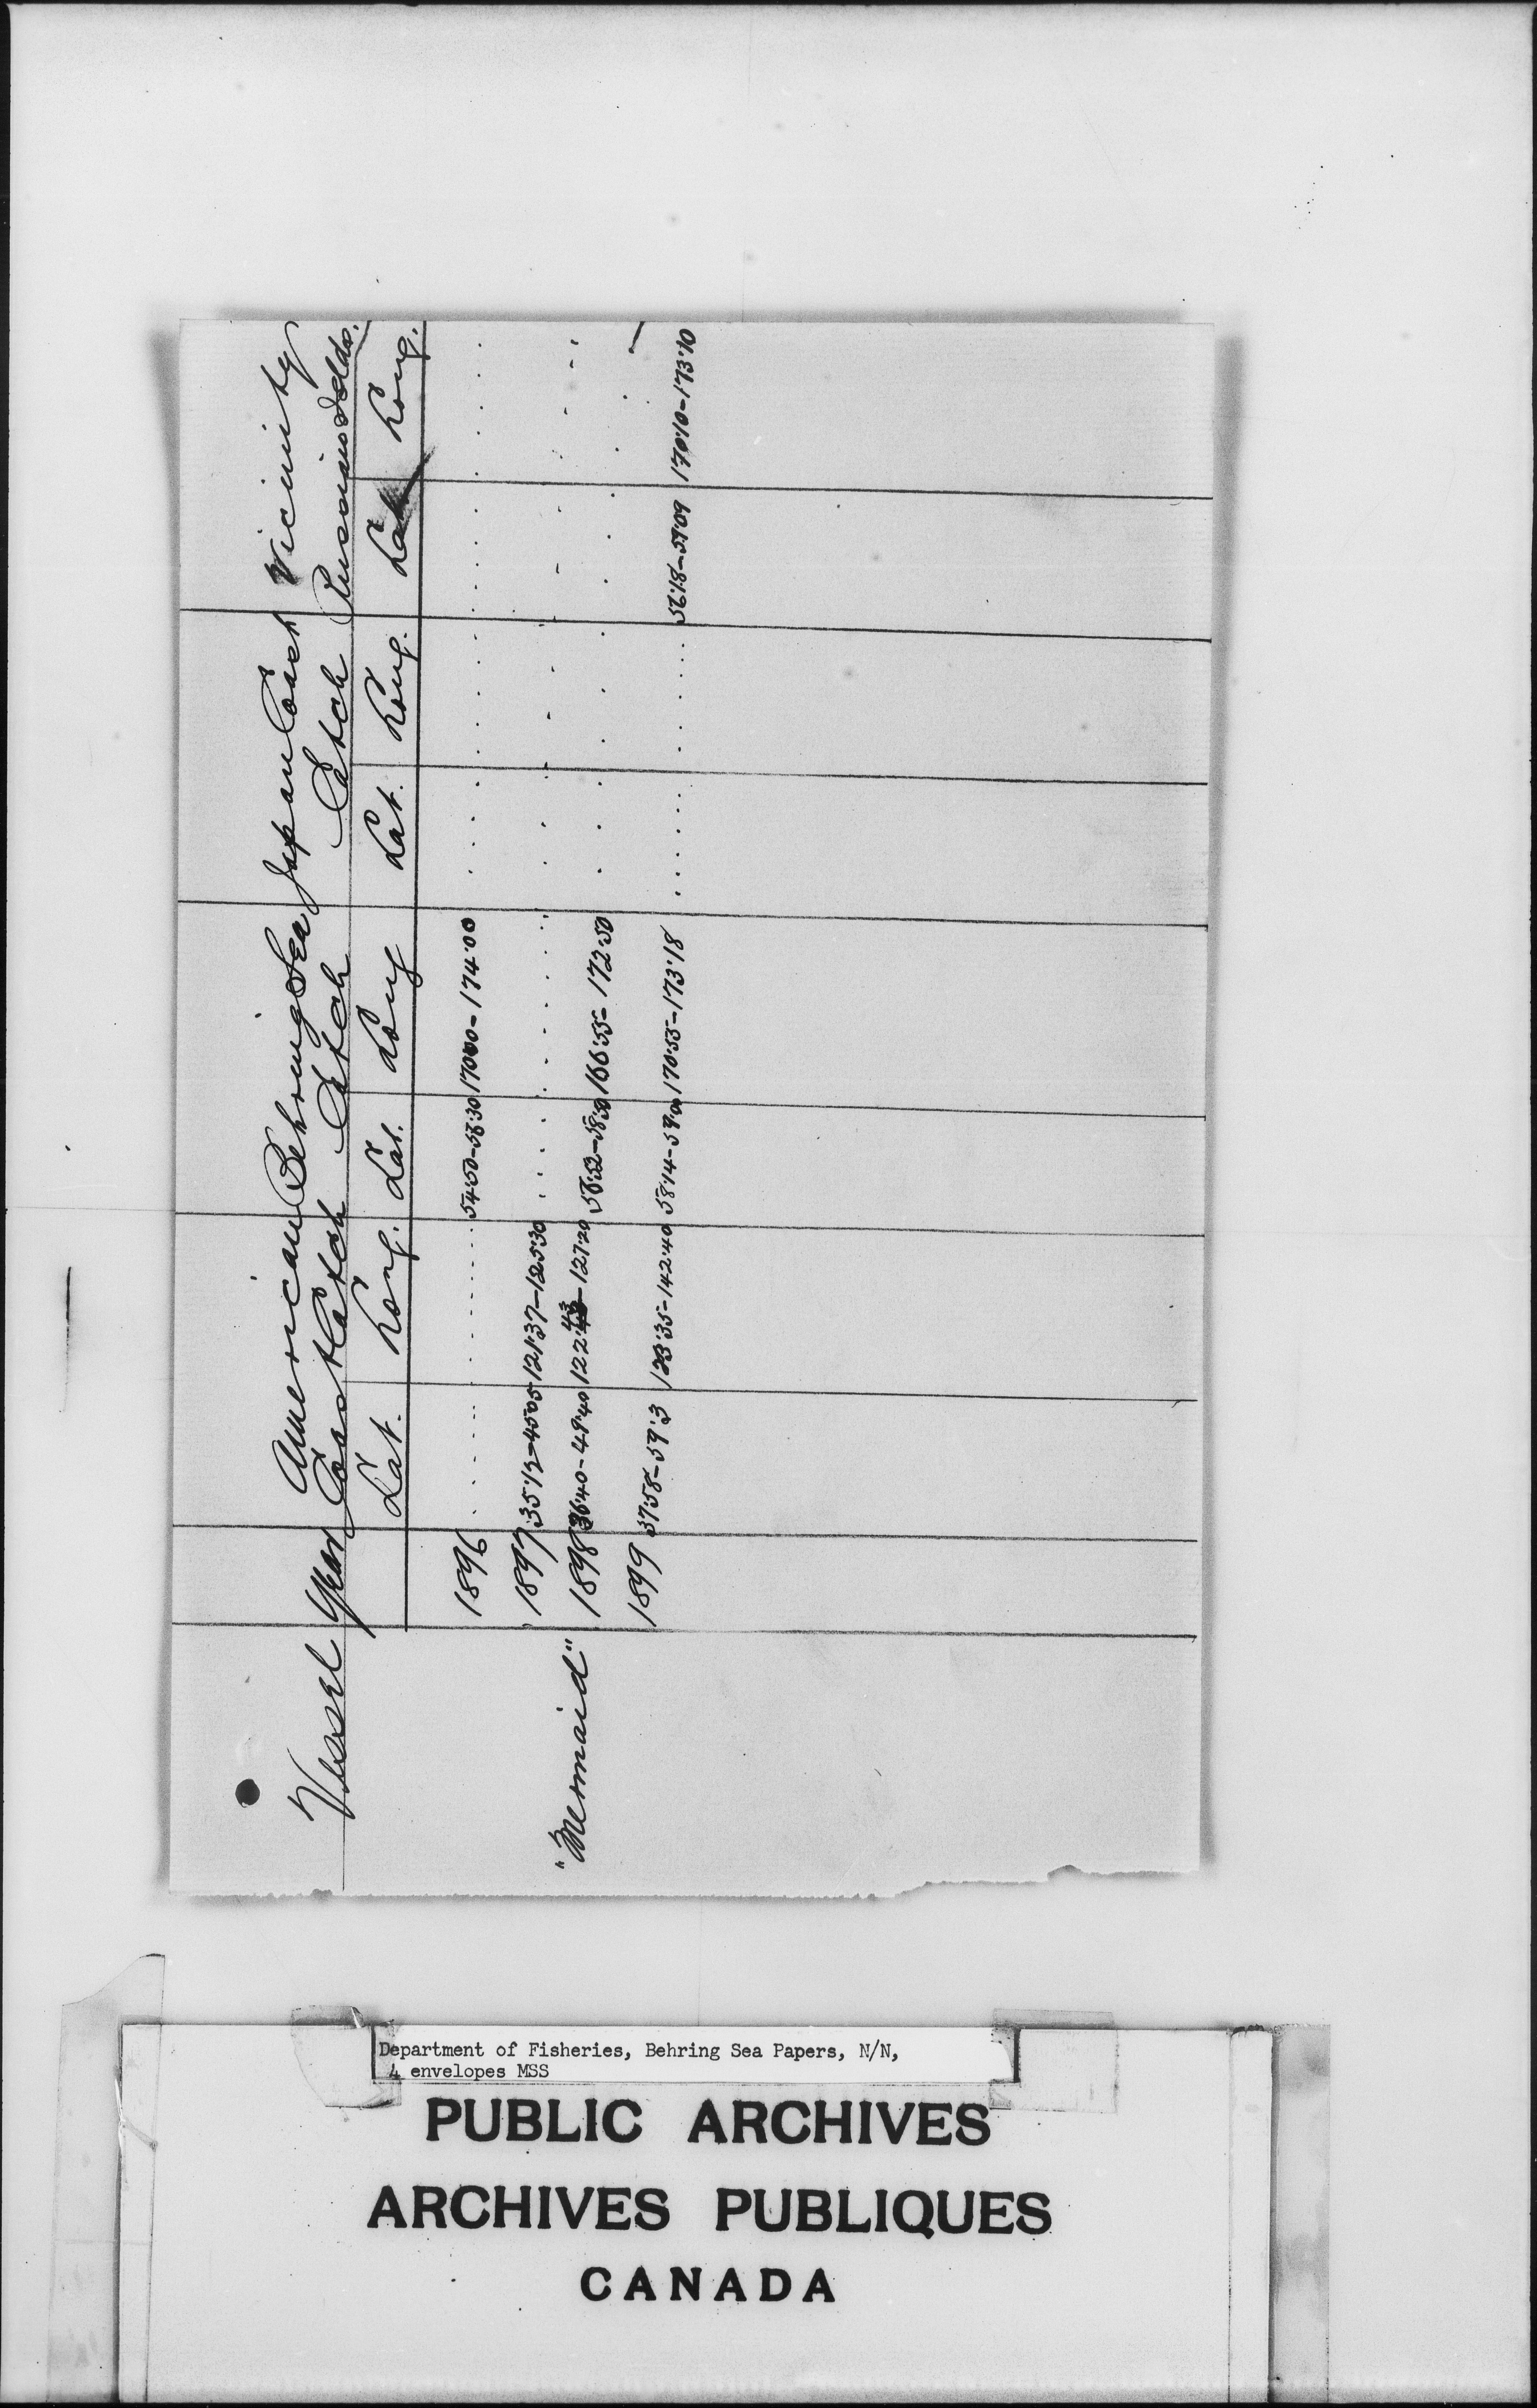 Vessel Year American Coast Catch Behring Sea Catch Japan Coast Catch Vicinity Russian Islds.
Lat. Long. Lat. Long Lat. Long. Lat. Long.
1896 . . . . . . . . . . 54.50-56.30 170.00-174.00 . . . . . . . . . . . . . . . .
1897 35.12-45.05 121.37-125.30 . . . . . . . . . . . . . . . . . . . .
"Mermaid" 1898 36.40-49.40 122.43-127.20 56.52-58.30 166.55-172.50 . . . . . . . . . .
1899 37.58-59.3 123.35-142.40 58.14-59.00 170.55-173.18 . . . . . . . . . . 56.18-57.09 170.10-173.10
Department of Fisheries, Behring Sea Papers, N/N,
4 envelopes MSS
PUBLIC ARCHIVES
ARCHIVES PUBLIQUES
CANADA